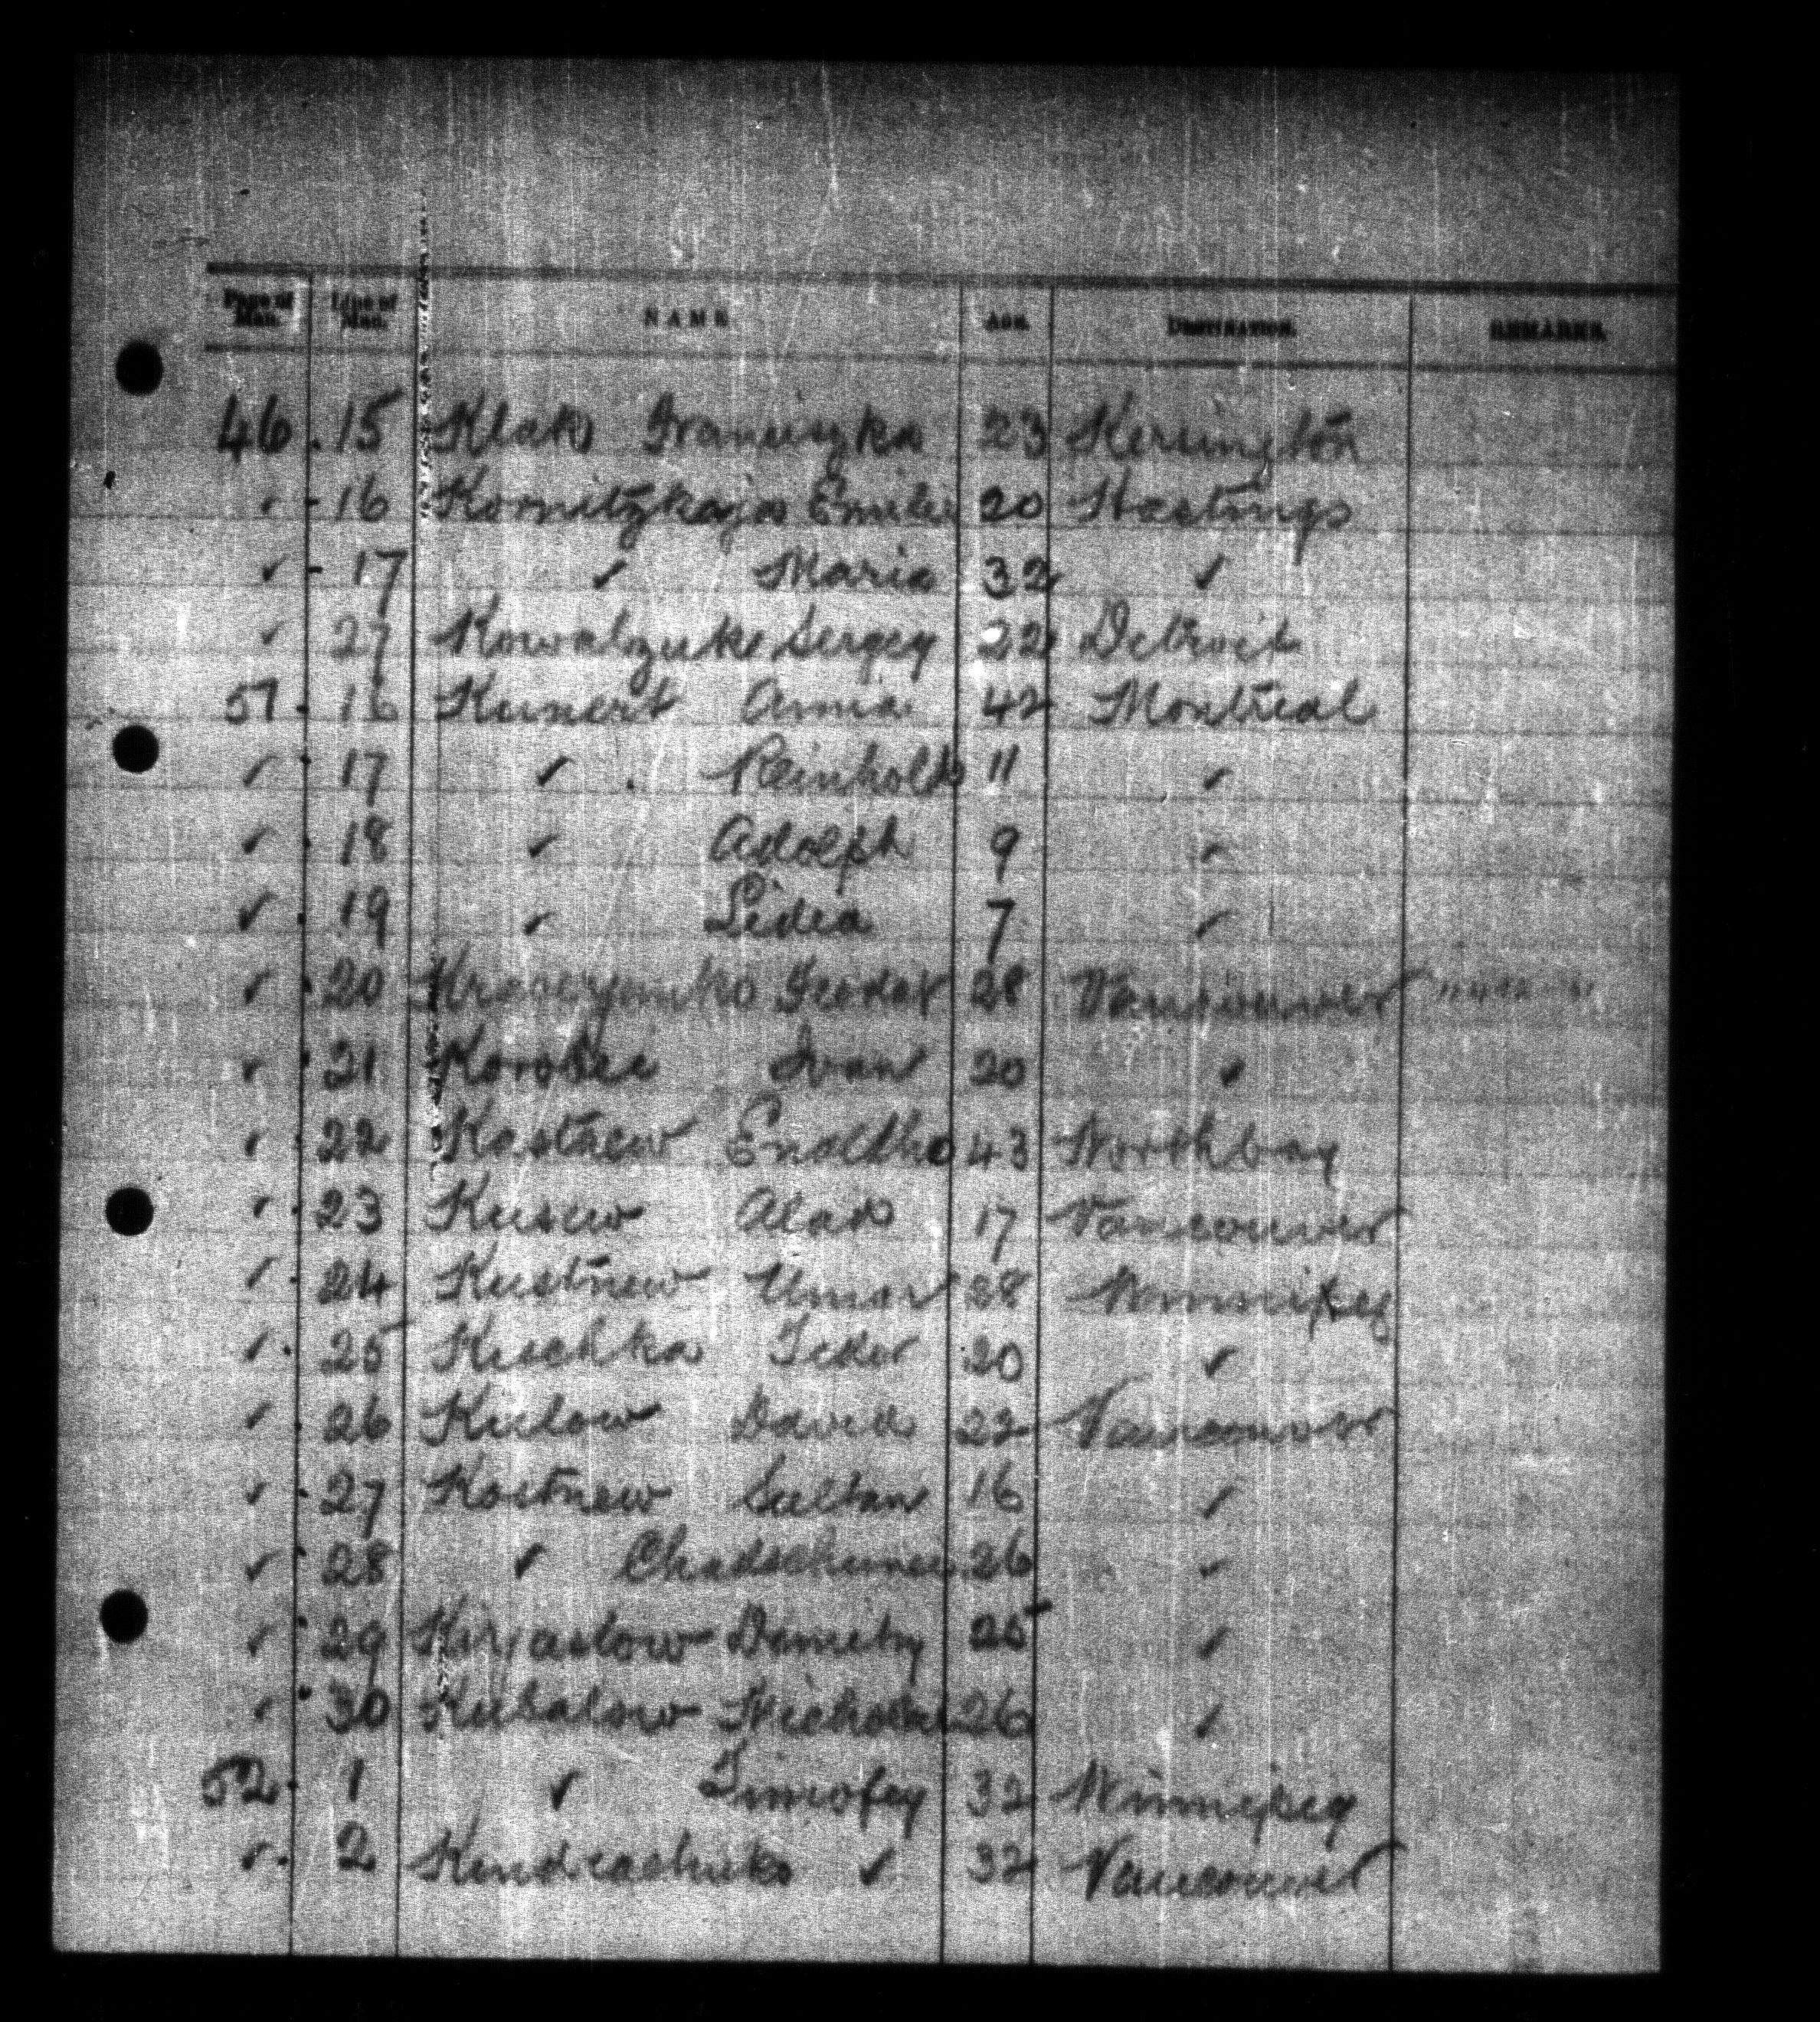 Page of Man. Line of Man. NAME AGE. DESTINATION. REMARKS.
46 15 Klak Franciszka 23
16 Emilie 20 Hastings
✓ 17 ✓ Maria 32 ✓
✓ 27 Kowalczuk Sergey 22 Detroit
51 16 Kunert Anna 42 Montreal
✓ 17 ✓ Reinhold 11 ✓
✓ 18 ✓ Adolph 9 ✓
✓ 19 ✓ Lidia 7 ✓
✓ 20 28 Vancouver
✓ 21 Ivan 20 ✓
✓ 22 Kastnew 43 Northbay
✓ 23 Kusew 17 Vancouver
✓ 24 Kustnew Umar 28 Winnipeg
✓ 25 Kuschka Fedor 20 ✓
✓ 26 Kulow David 22 Vancouver
✓ 27 Kostnew Sultan 16 ✓
✓ 28 ✓ 26 ✓
✓ 29 25 ✓
✓ 30 Kubalow Nicholai 26 ✓
52 1 ✓ Timofey 32 Winnipeg
✓ 2 ✓ 32 Vancouver